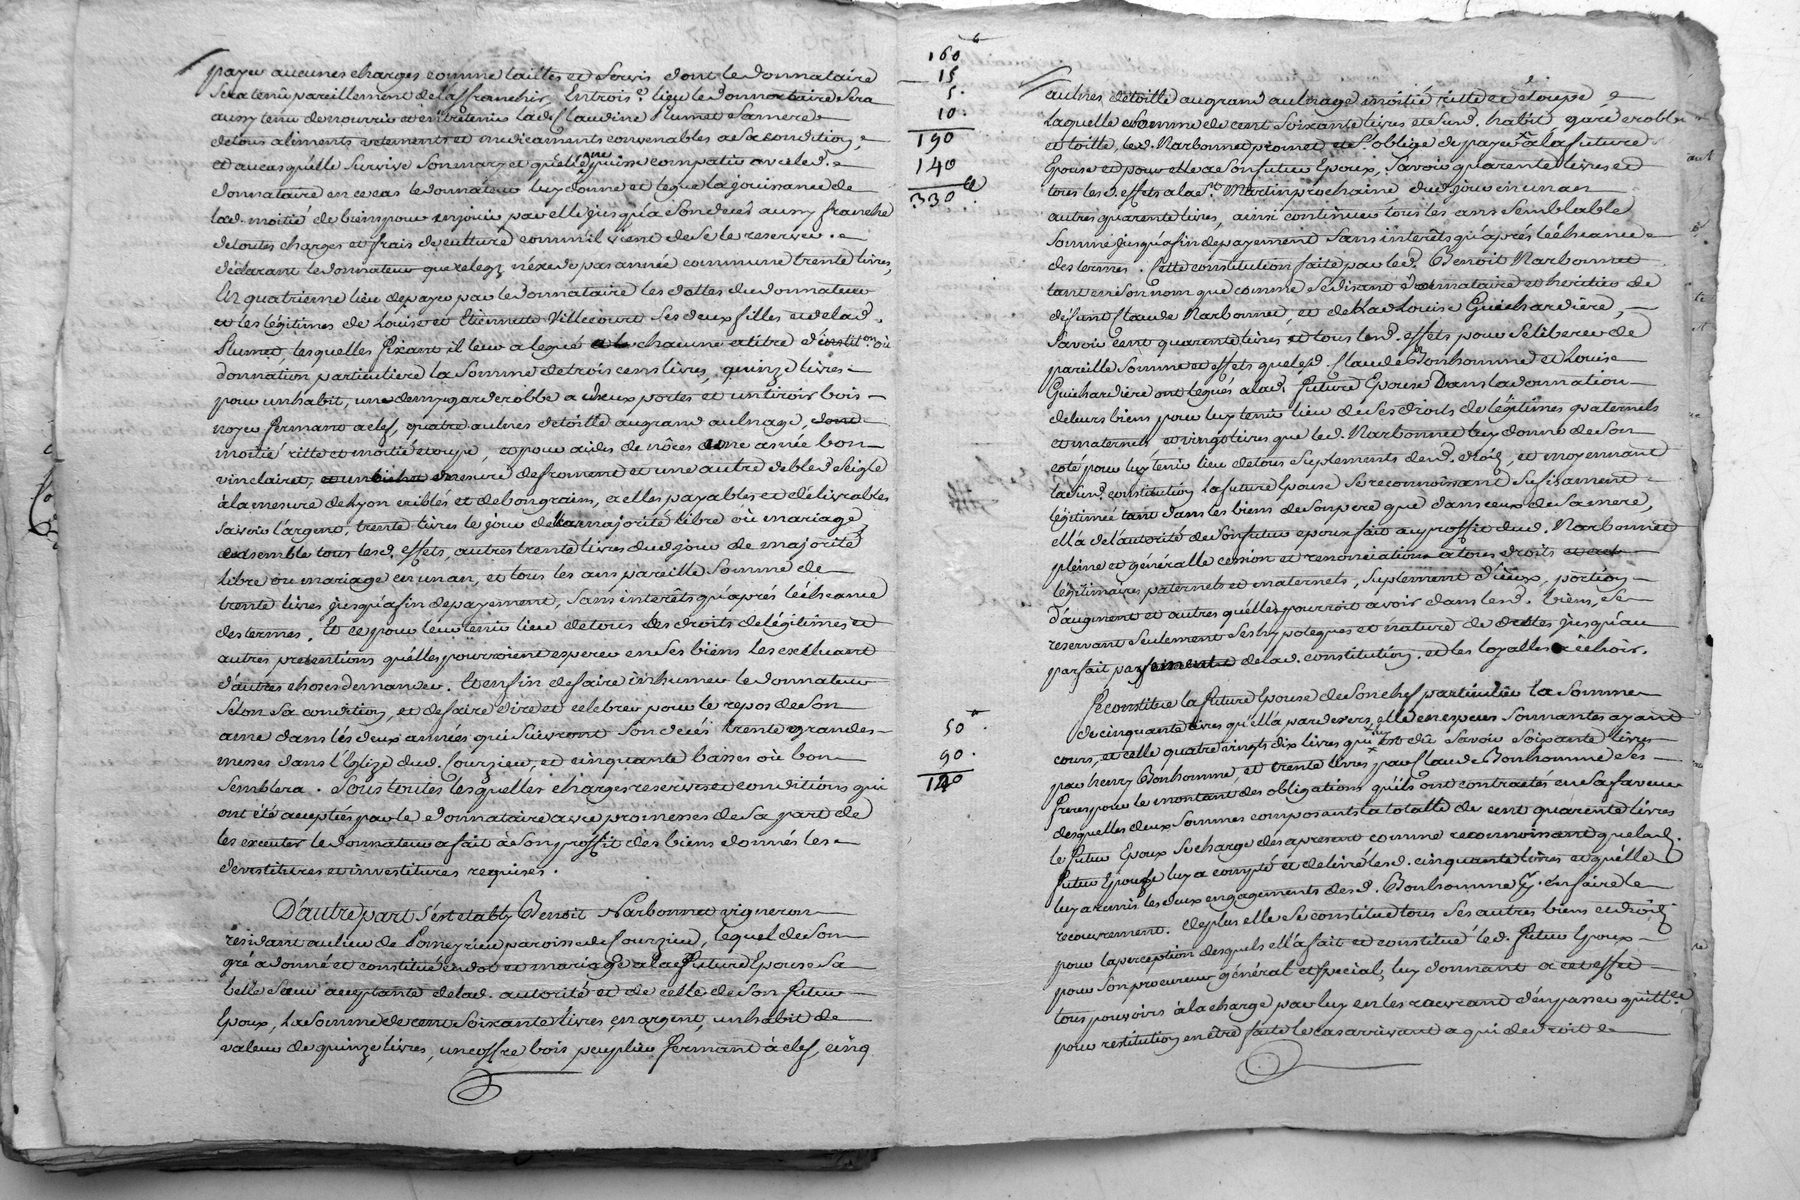 payer aucunes charges comme tailles et servis dont le donnataire
sera tenû pareillement de l'affranchir, En trois.e lieu le donnataire sera
aussy tenu de nourrir et entretenir lad. Claudine Plumet sa mere
de tous aliments vetements et medicaments convenables a sa condition,
et au cas qu'elle survive son mary et qu'elle ne puisse compatir avec led.
donnataire en ce cas le donnateur luy donne et legue la jouissance de
lad. moitié de biens pour en jouir par elle jusqu'a son decés aussy franche
de toutes charges et frais de culture comm'il vient de se le reserver.
déclarant le donnateur que ce legz n'éxede pas année commune trente livres,
En quatrieme lieu de payer par le donnataire les dottes du donnateur
et les légitimes de Louise et Etiennette Villecourt ses deux filles et de lad.
Plumet, lesquelles fixant il leur a legué a chacune a titre d'institon. où
donnation particuliere la somme de trois cens livres, quinze livres
pour un habit, une demy garderobbe a deux portes et un tiroir bois
noyer fermant a clef, quatre aulnes de toille au grand aulnage, dont
moitié ritte et moitié etoupe, et pour aides de nôces une anée bon
vin clairet, et un bichet mesure de froment et une autre de bled seigle
à la mesure de Lyon cribles et de bon grains, a elles payables et délivrables
savoir l'argent, trente livres le jour de leur majorité libre où mariage
ensemble tous lesd. effets, autres trente livres dud. jour de majorité
libre ou mariage en un an, et tous les ans pareille somme de
trente livres jusqu'a fin de payement, sans interêts qu'aprés l'écheance
des termes. Et ce pour leur tenir lieu de tous les droits de légitimes et
autres pretentions qu'elles pourroient esperer en ses biens les excluant
d'autres choses demander. Et enfin de faire inhumer le donnateur
selon sa condition, et de faire dire et celebrer pour le repos de son
ame dans lés deux années qui suivront son décés trente grandes
messes dans l'Eglize dud. Courzieu, et cinquante basses où bon
semblera. Sous toutes lesquelles charges reserves et conditions qui
ont été acceptés par le donnataire avec promesses de sa part de
les executer le donnateur a fait à son proffit des biens donnés les
devestitures et investitures requises.
D'autre part s'est etably Benoit Narbonnet vigneron
résidant au lieu de Poneyrieu paroisse de Courzieu, lequel de son
gré a donné et constitué en dot et mariage a la future Epouse sa
belle soeur acceptante de lad. autorité et de celle de son futur
Epoux, la somme de cent soixante livres en argent, un habit de
valeur de quinze livres, un coffre bois peuplier fermant à clef, cinq
160
15
5.
10.
190
140
330.
aulnes de toille au grand aulnage moitié ritte et etoupe,
laquelle somme de cent soixante livres et surd. habit garderobbe
et toille, led. Narbonnet promet et s'oblige de payer a la future
Epouse et pour elle a son futur Epoux, savoir quarente livres et
tous lesd. effets a la St. Martin prochaine dud. jour en un an
autres quarente livres, ainsi continuer tous les ans semblable
somme jusqu'a fin de payement sans interêts qu'aprés l'écheance
des termes. Cette constitution faite par led. Benoit Narbonnet
tant en son nom que comme se disant donnataire et heritier de
defunt Claude Narbonnet, et de lad. Louise Guichardière,
savoir cent quarente livres et tous lesd. effets pour se liberer de
pareille somme et effets que lesd. Claude Bonhomme et Louise
Guichardière ont legués a lad. future Epouse dans la donnation
de leurs biens pour luy tenir lieu de ses droits de légitimes paternels
et maternels et vingt livres que led. Narbonnet luy donne de son
coté pour luy tenir lieu de tous suplements desd. droits, et moyennant
la surd. constitution la future Epouse se reconnoissant sufisament
légitimée tant dans les biens de son pere que dans ceux de sa mere,
ell'a de l'autorité de son futur epoux fait au proffit dud. Narbonnet
pleine et généralle cession et renonciation a tous droits
légitimaires paternels et maternels, suplement d'iceux, portion
d'augment et autres qu'elle pourroit avoir dans lesd. biens, se
reservant seulement ses hypoteques et nature de dettes jusqu'au
parfait payement de lad. constitution, et les loyalles a échoir.
Se constitue la future Epouse de son chef particulier la somme
de cinquante livres qu'ell'a par devers elle en especes sonnantes ayant
cours, et celle quatre vingts dix livres qui luy est dûe savoir soixante livres
par henry Bonhomme, et trente livres par Claude Bonhomme ses
freres pour le montant des obligations qu'ils ont contractés en sa faveur
desquelles deux sommes composants la totallé de cent quarente livres
le futur Epoux se charge des apresent comme reconnoissant que lad.
future Epouse luy a compté et delivré lesd. cinquante livres et qu'elle
luy a remis les deux engagements desd. Bonhomme pr. en faire le
recouvrement. de plus elle se constitue tous ses autres biens et droits
pour la perception desquels ell'a fait et constitué led. futur Epoux
pour son procureur général et special, luy donnant a cet effet
tous pouvoirs à la charge par luy en les recevrant d'en passer quittce.
pour restitution en être faite le cas arrivant a qui de droit
50.
90.
140